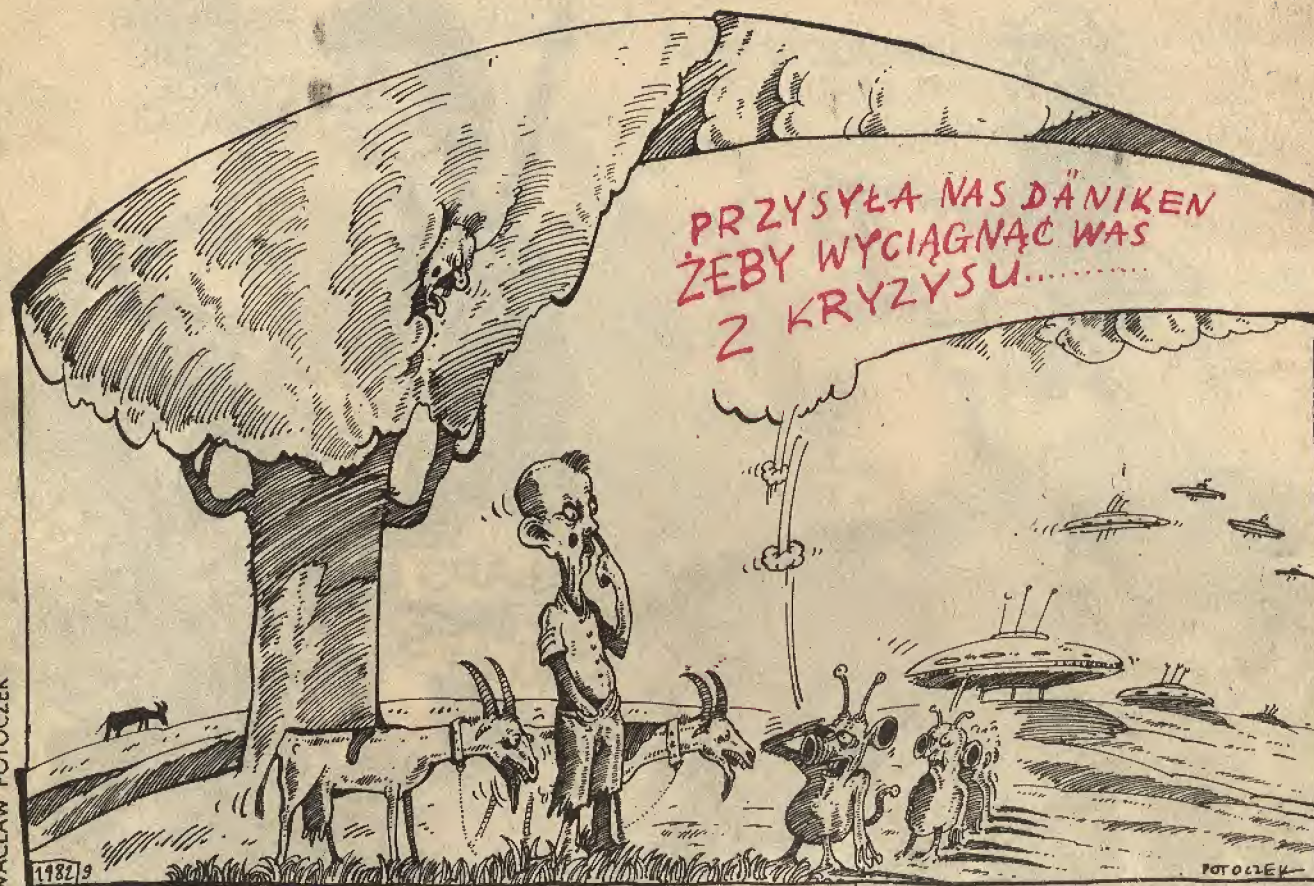 PRZYSYŁA NAS DÄNIKEN
ŻEBY WYCIĄGNĄĆ WAS
Z KRYZYSU...........
WACŁAW POTOCZEK
1982/9
POTOCZEK